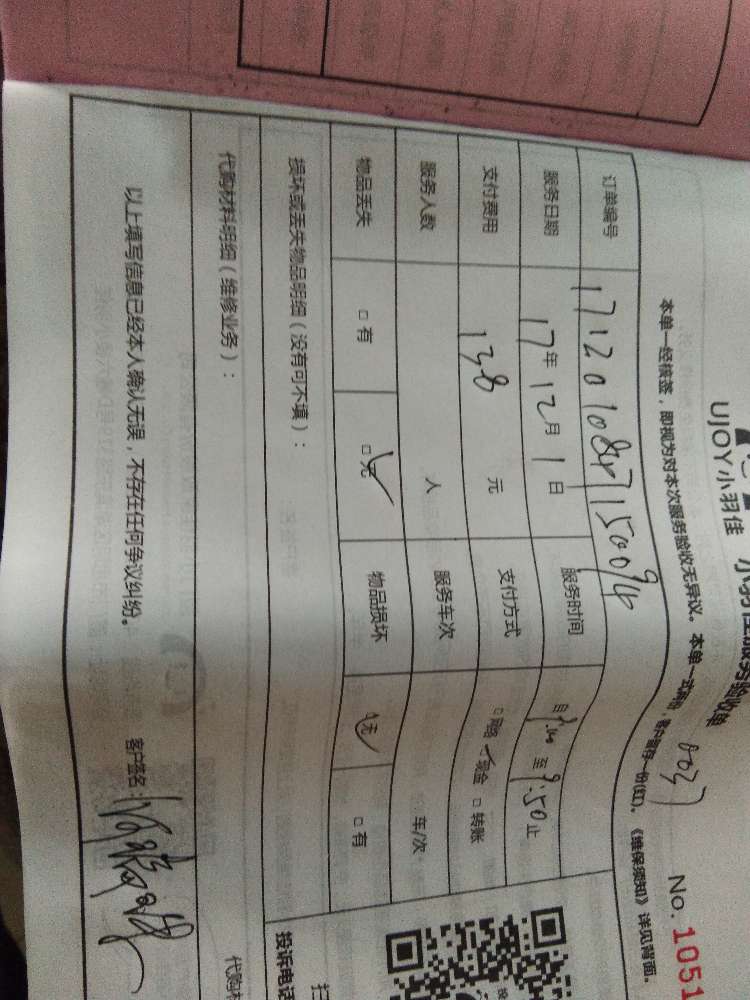 UJOY小羽佳 小羽佳服务验收单
No. 1051
本单一经核签，即视为对本次服务验收无异议。本单一式两份，客户留存一份(红)。《维保须知》详见背面。
0037
订单编号
服务日期 17年 12月 1日 服务时间 至 9:50止
支付费用 138 元 支付方式 □网络 现金 □转账
服务人数 人 服务车次 车/次
物品丢失 □有 □无 物品损坏 □无 □有
损坏或丢失物品明细（没有可不填）：
代购材料明细（维修业务）：
以上填写信息已经本人确认无误，不存在任何争议纠纷。 客户签名：
投诉电话